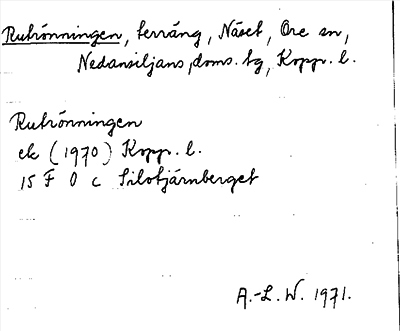 Rutrönningen, terräng, Näset, Ore sn,
Nedansiljans doms. tg, Kopp. l.
Rutrönningen
ek (1970) Kopp. l.
15 F 0 c Pilotjärnberget
A.-L. W. 1971.